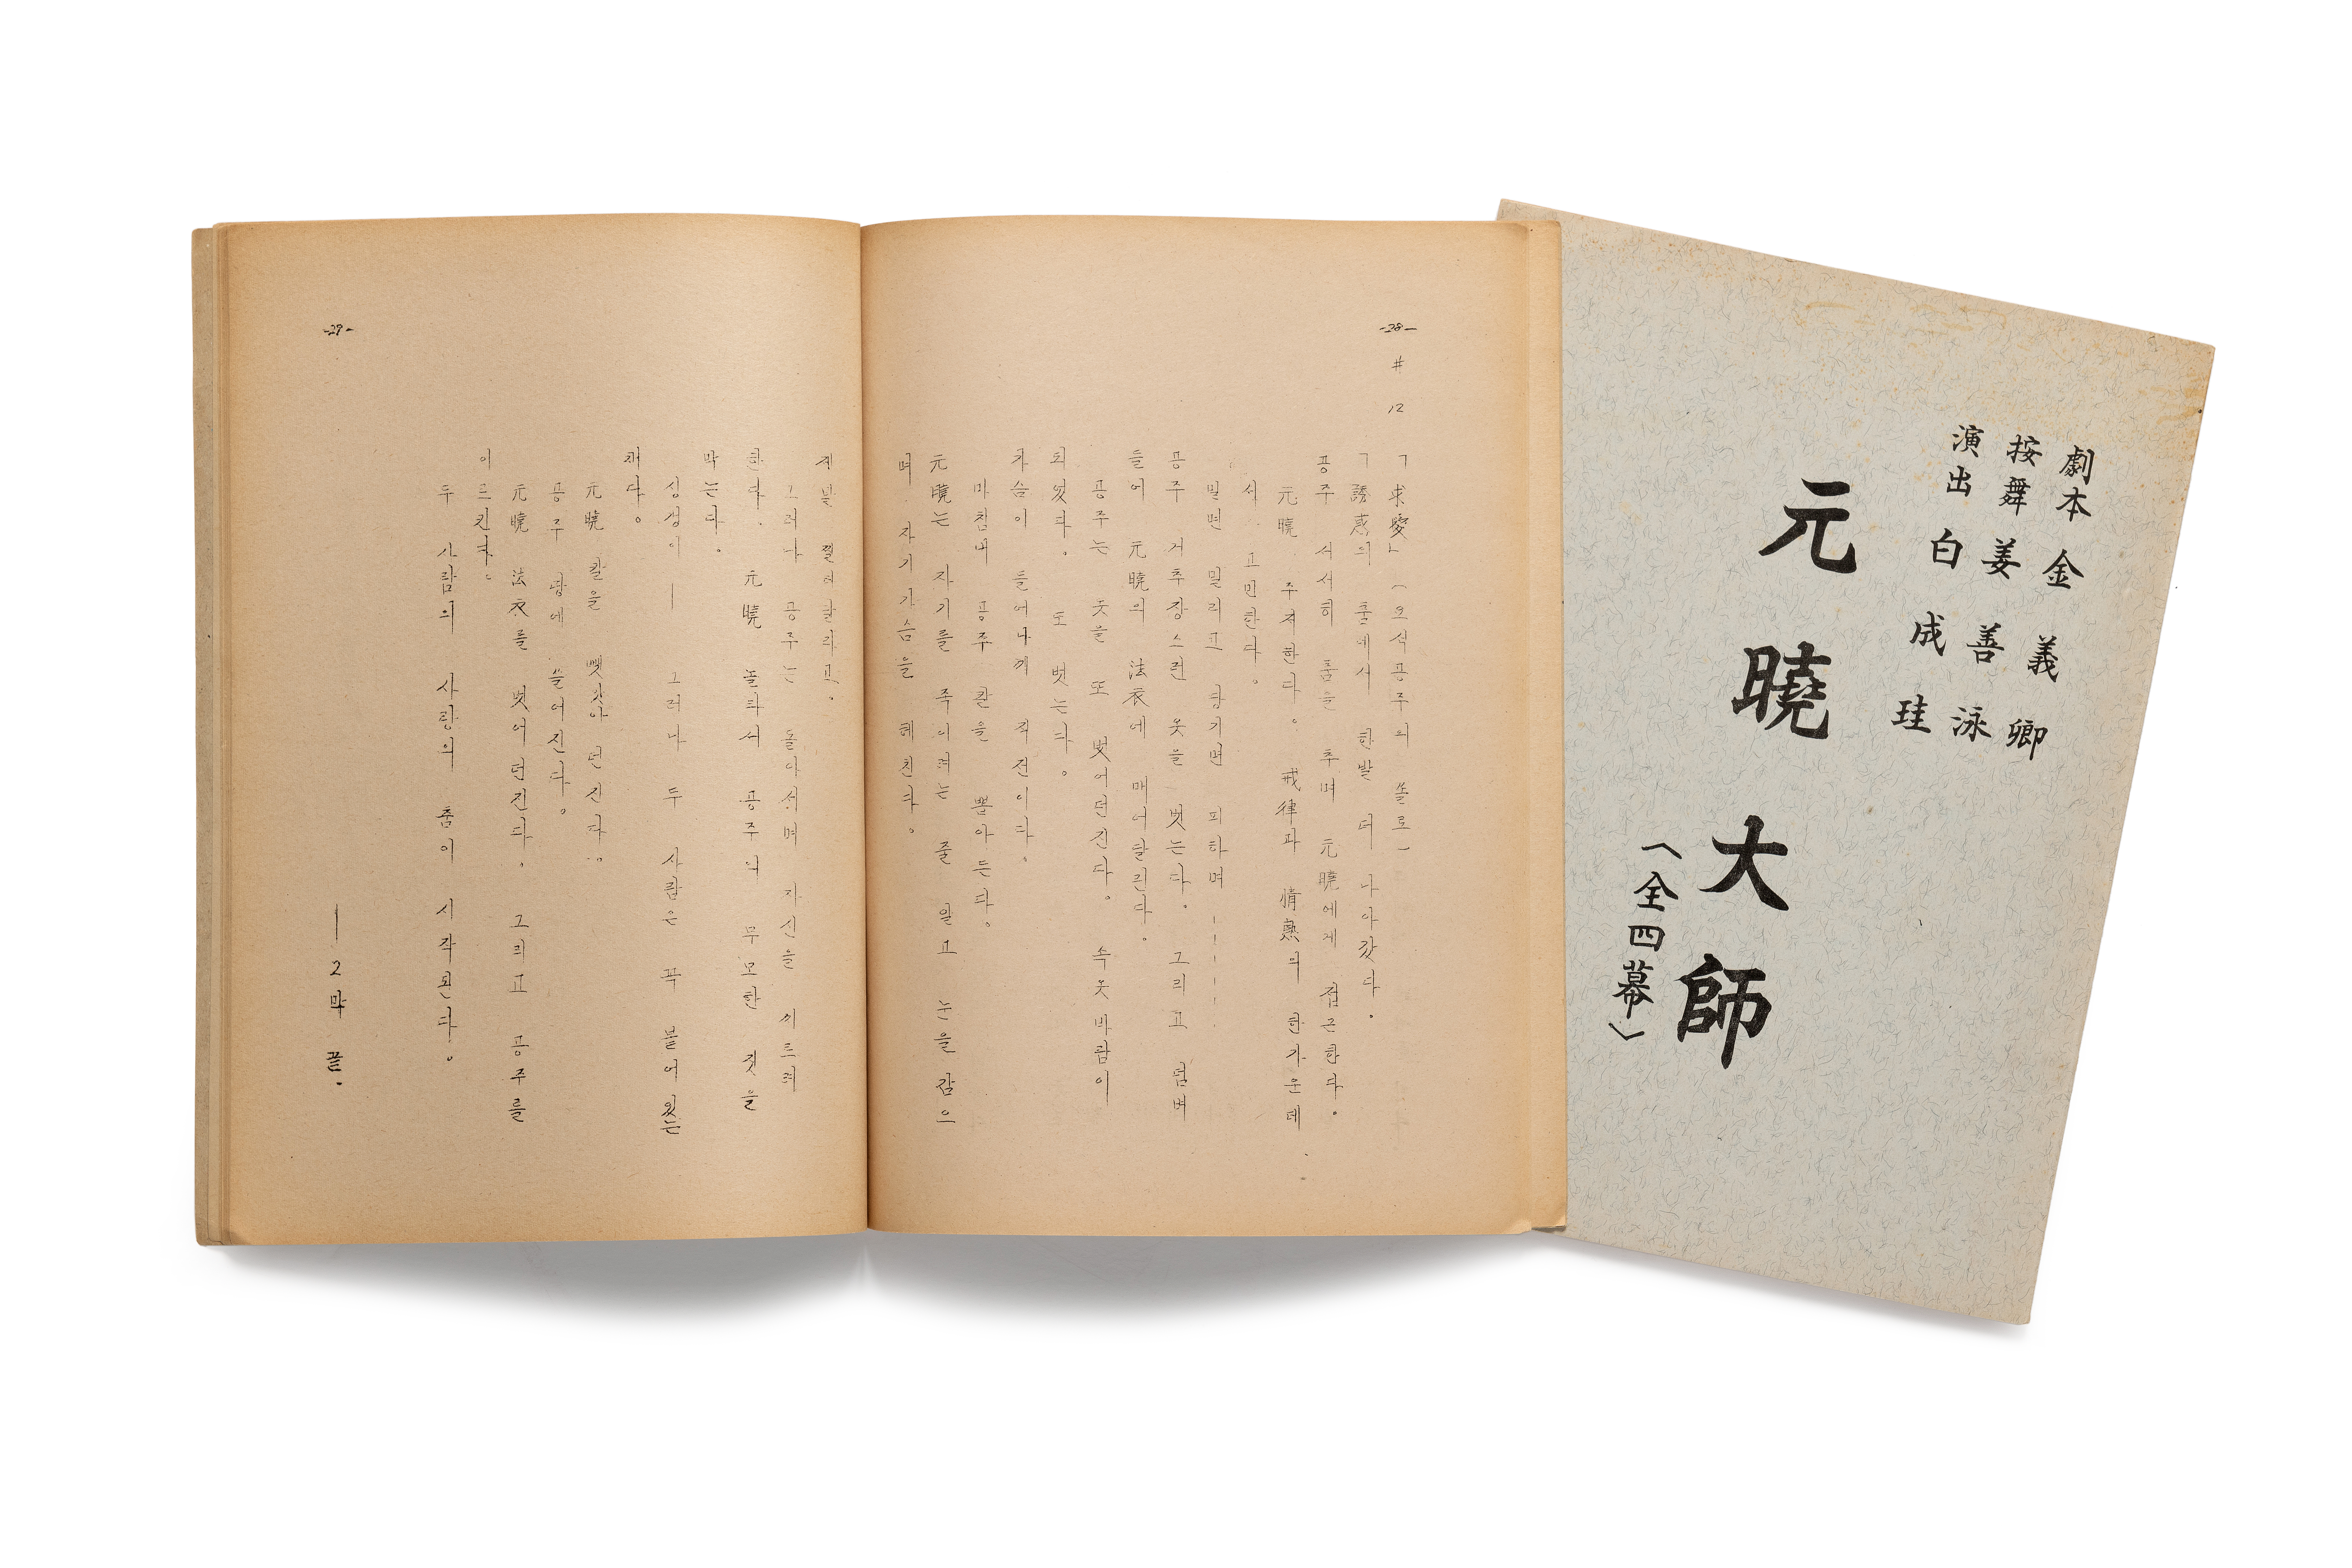 劇本 金義卿
按舞 姜善泳
演出 白成珪
元曉大師
〈全四幕〉
-28-
# 12 「求愛」 (요석공주의 쏠로)
「誘惑의 춤에서 한발 더 나아갔다.
공주 서서히 춤을 추며 元曉에게 접근한다.
元曉 주저한다. 戒律과 情熱의 한가운데
서 고민한다.
밀면 밀리고 당기면 피하며 ----.
공주 거추장스런 옷을 벗는다. 그리고 덤벼
들어 元曉의 法衣에 매어달린다.
공주는 옷을 또 벗어던진다. 속옷바람이
되었다. 또 벗는다.
가슴이 들어나게 직전이다.
마침내 공주 칼을 뽑아든다.
元曉는 자기를 죽이려는 줄 알고 눈을 감으
며. 자기가슴을 헤친다.
-29-
제발 찔러달라고.
그러나 공주는 돌아서며 자신을 찌르려
한다. 元曉 놀라서 공주의 무모한 짓을
막는다.
싱생이 — 그러나 두 사람은 꼭 붙어있는
채다.
元曉 칼을 뺏앗아 던진다.
공주 땅에 쓸어진다.
元曉 法衣를 벗어던진다. 그리고 공주를
이르킨다.
두 사람의 사랑의 춤이 시작된다.
— 2막 끝.